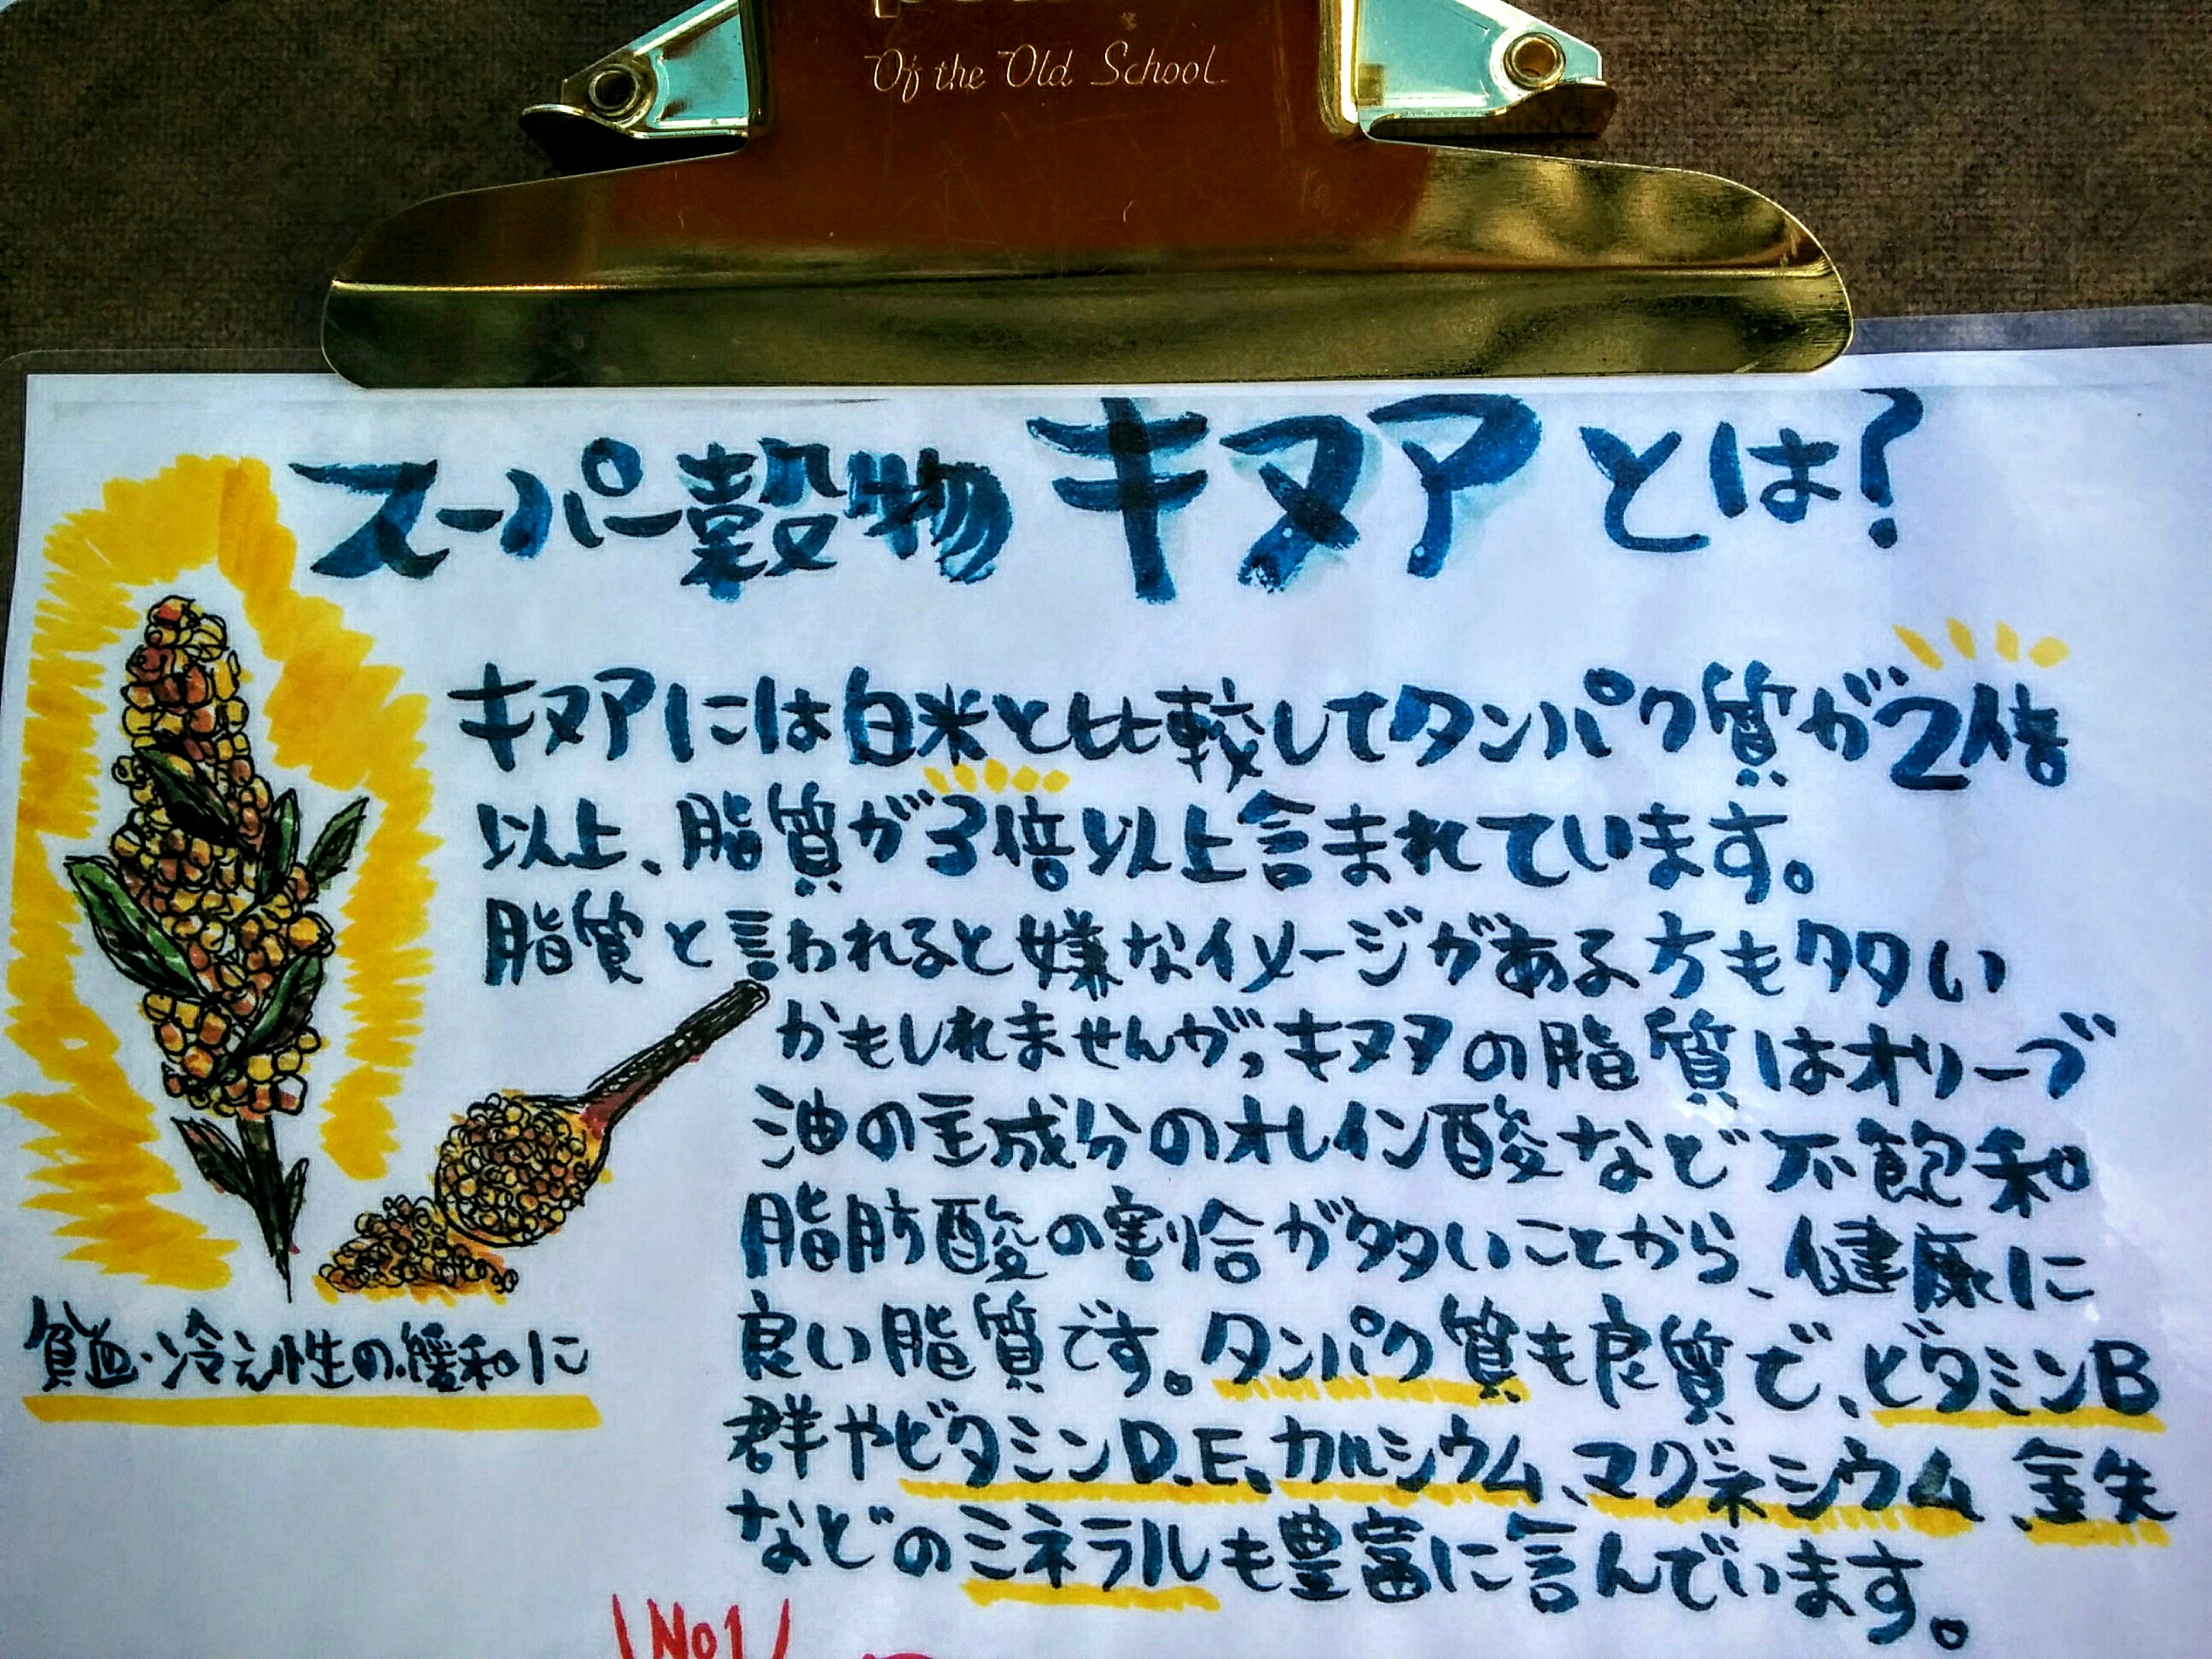 Of the Old School
スーパー穀物 キヌア とは?
キヌアには白米と比較してタンパク質が2倍
以上、脂質が3倍以上含まれています。
脂質と言われると嫌なイメージがある方も多い
かもしれませんが、キヌアの脂質はオリーブ
油の主成分のオレイン酸など不飽和
脂肪酸の割合が多いことから、健康に
良い脂質です。タンパク質も良質で、ビタミンB
群やビタミンD、E、カルシウム、マグネシウム、鉄
などのミネラルも豊富に含んでいます。
貧血・冷え性の緩和に
\No1/